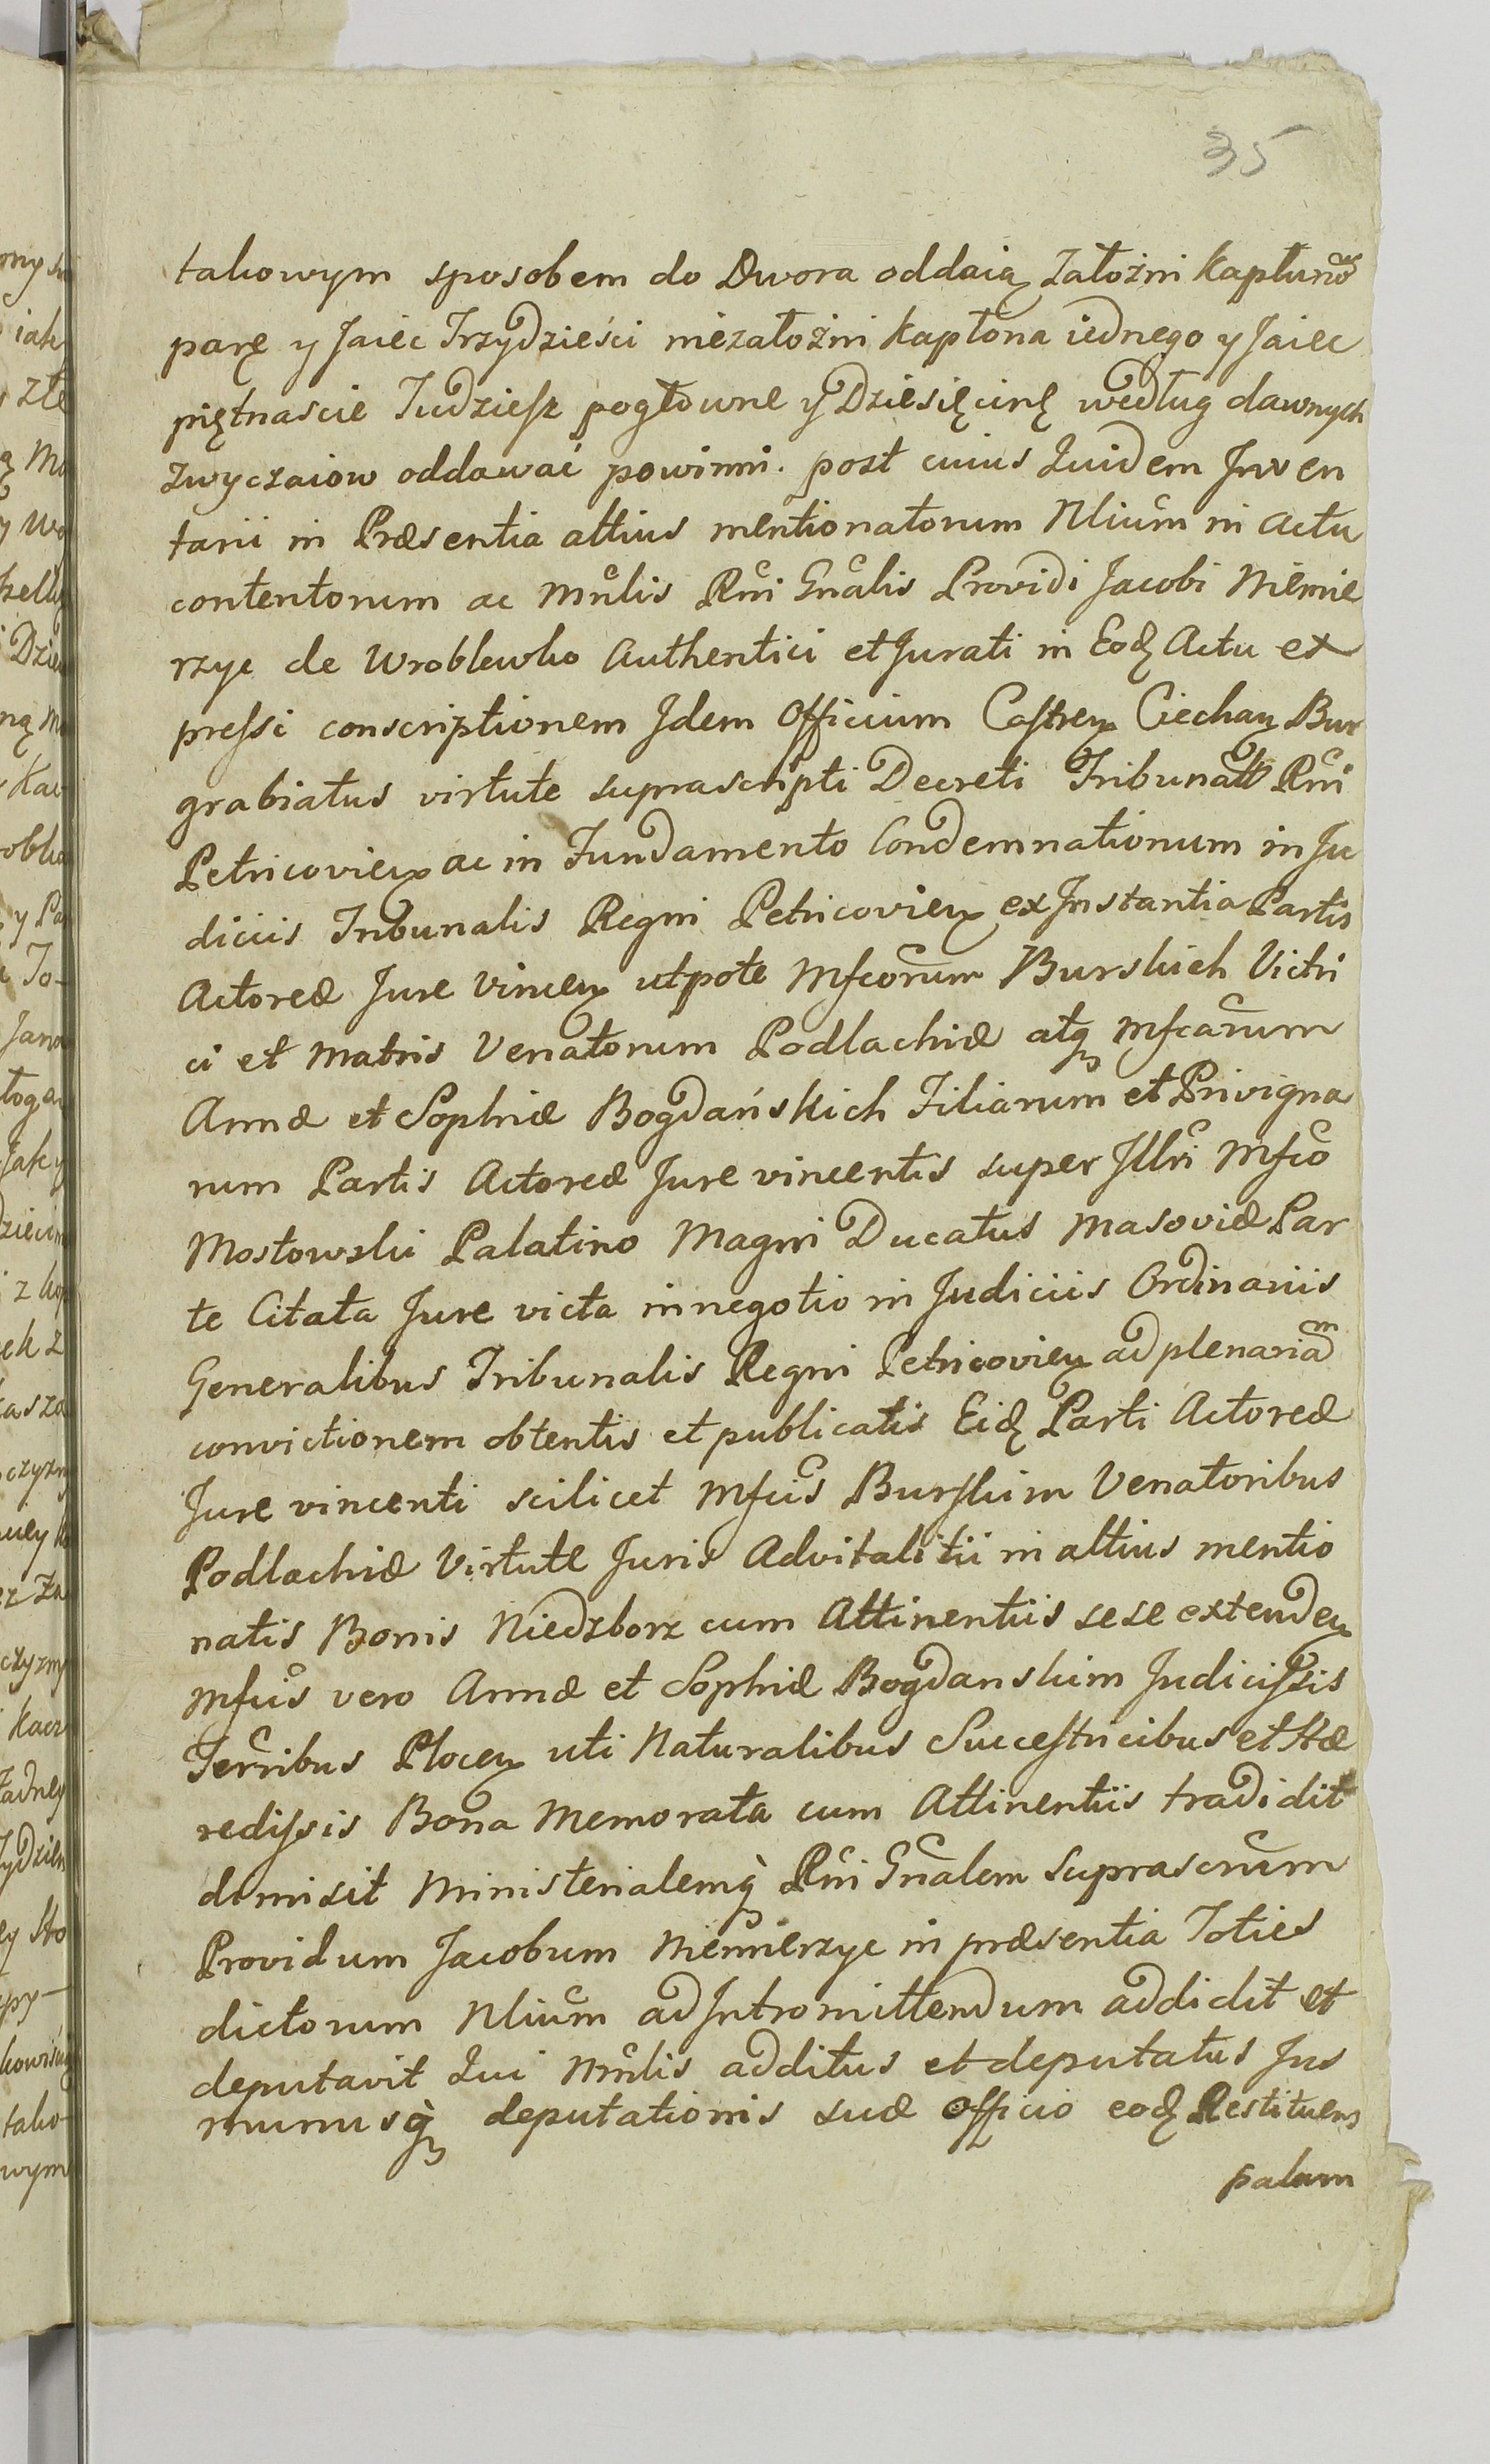 35
takowym sposobem do Dwora oddaią Załoźni Kapłuno
parę y Jaiec Trzydzieści niezałoźni Kapłona iednego y Jaiec
piętnascie Tudziesz pogłowne y Dziesięcinę według dawnych
zwyczaiow oddawać powinni. post cuius Quidem Inven
tarii in Præsentia altius mentionatorum Nlium in Actu
contentorum ac Mnlis Rni Gnalis Providi Jacobi Niemie
rzyc de Wroblewko Authentici et Jurati in Eodz Actu ex
pressi conscriptionem Idem Officium Castren Ciechan Bur
grabiatus virtute suprascripti Decreti Tribunalt Rni
Petricovien ac in Fundamento Condemnationum in Ju
diciis Tribunalis Regni Petricovien ex Instantia Partis
Actoreæ Jure Vincen utpote Mfcorum Burskich Vitri
ci et Matris Venatorum Podlachiæ atq Mfcarum
Annæ et Sophiæ Bogdańskich Filiarum et Privigna
rum Partis Actoreæ Jure vincentis super Illri Mfco
Mostowski Palatino Magni Ducatus Masoviæ Par
te Citata Jure victa in negotio in Judiciis Ordinariis
Generalibus Tribunalis Regni Petricovien ad plenariam
convictionem obtentis et publicatis Eidz Parti Actoreæ
Jure vincenti scilicet Mfcis Burskim Venatoribus
Podlachiæ Virtute Juris Advitalitii in altius mentio
natis Bonis Niedzborz cum Attinentiis sese extenden
Mfcis vero Annæ et Sophiæ Bogdanskim Judicissis
Terribus Plocen uti Naturalibus Successricibus et Hæ
redissis Bona Memorata cum Attinentiis tradidit
dimisit Ministerialemq Rni Gnalem Suprascrum
Providum Jacobum Niemierzyc in præsentia Toties
dictorum Nlium ad Intromittendum addidit et
deputavit Qui Mnlis additus et deputatus Jus
munusq deputationis suæ Officio eodz Restituens
palam